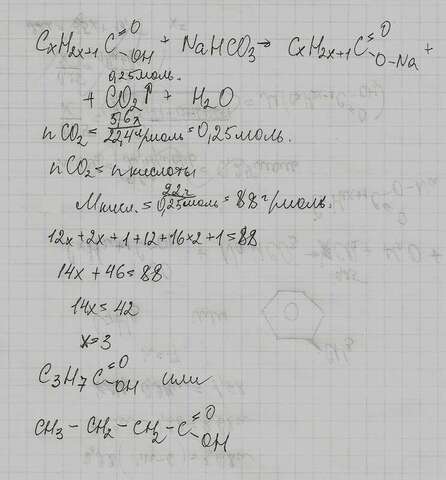 CxH2x+1 C =O OH + NaHCO3 → CxH2x+1 C =O O-Na +
0,25моль.
+ CO2↑ + H2O
n CO2 = 5,6л / 22,4 л/моль = 0,25моль.
n CO2 = n кислоты
M кисл. = 22г / 0,25моль = 88 г/моль.
12x + 2x + 1 + 12 + 16×2 + 1 = 88
14x + 46 = 88
14x = 42
x = 3
C3H7 C =O OH или
CH3 - CH2 - CH2 - C =O OH